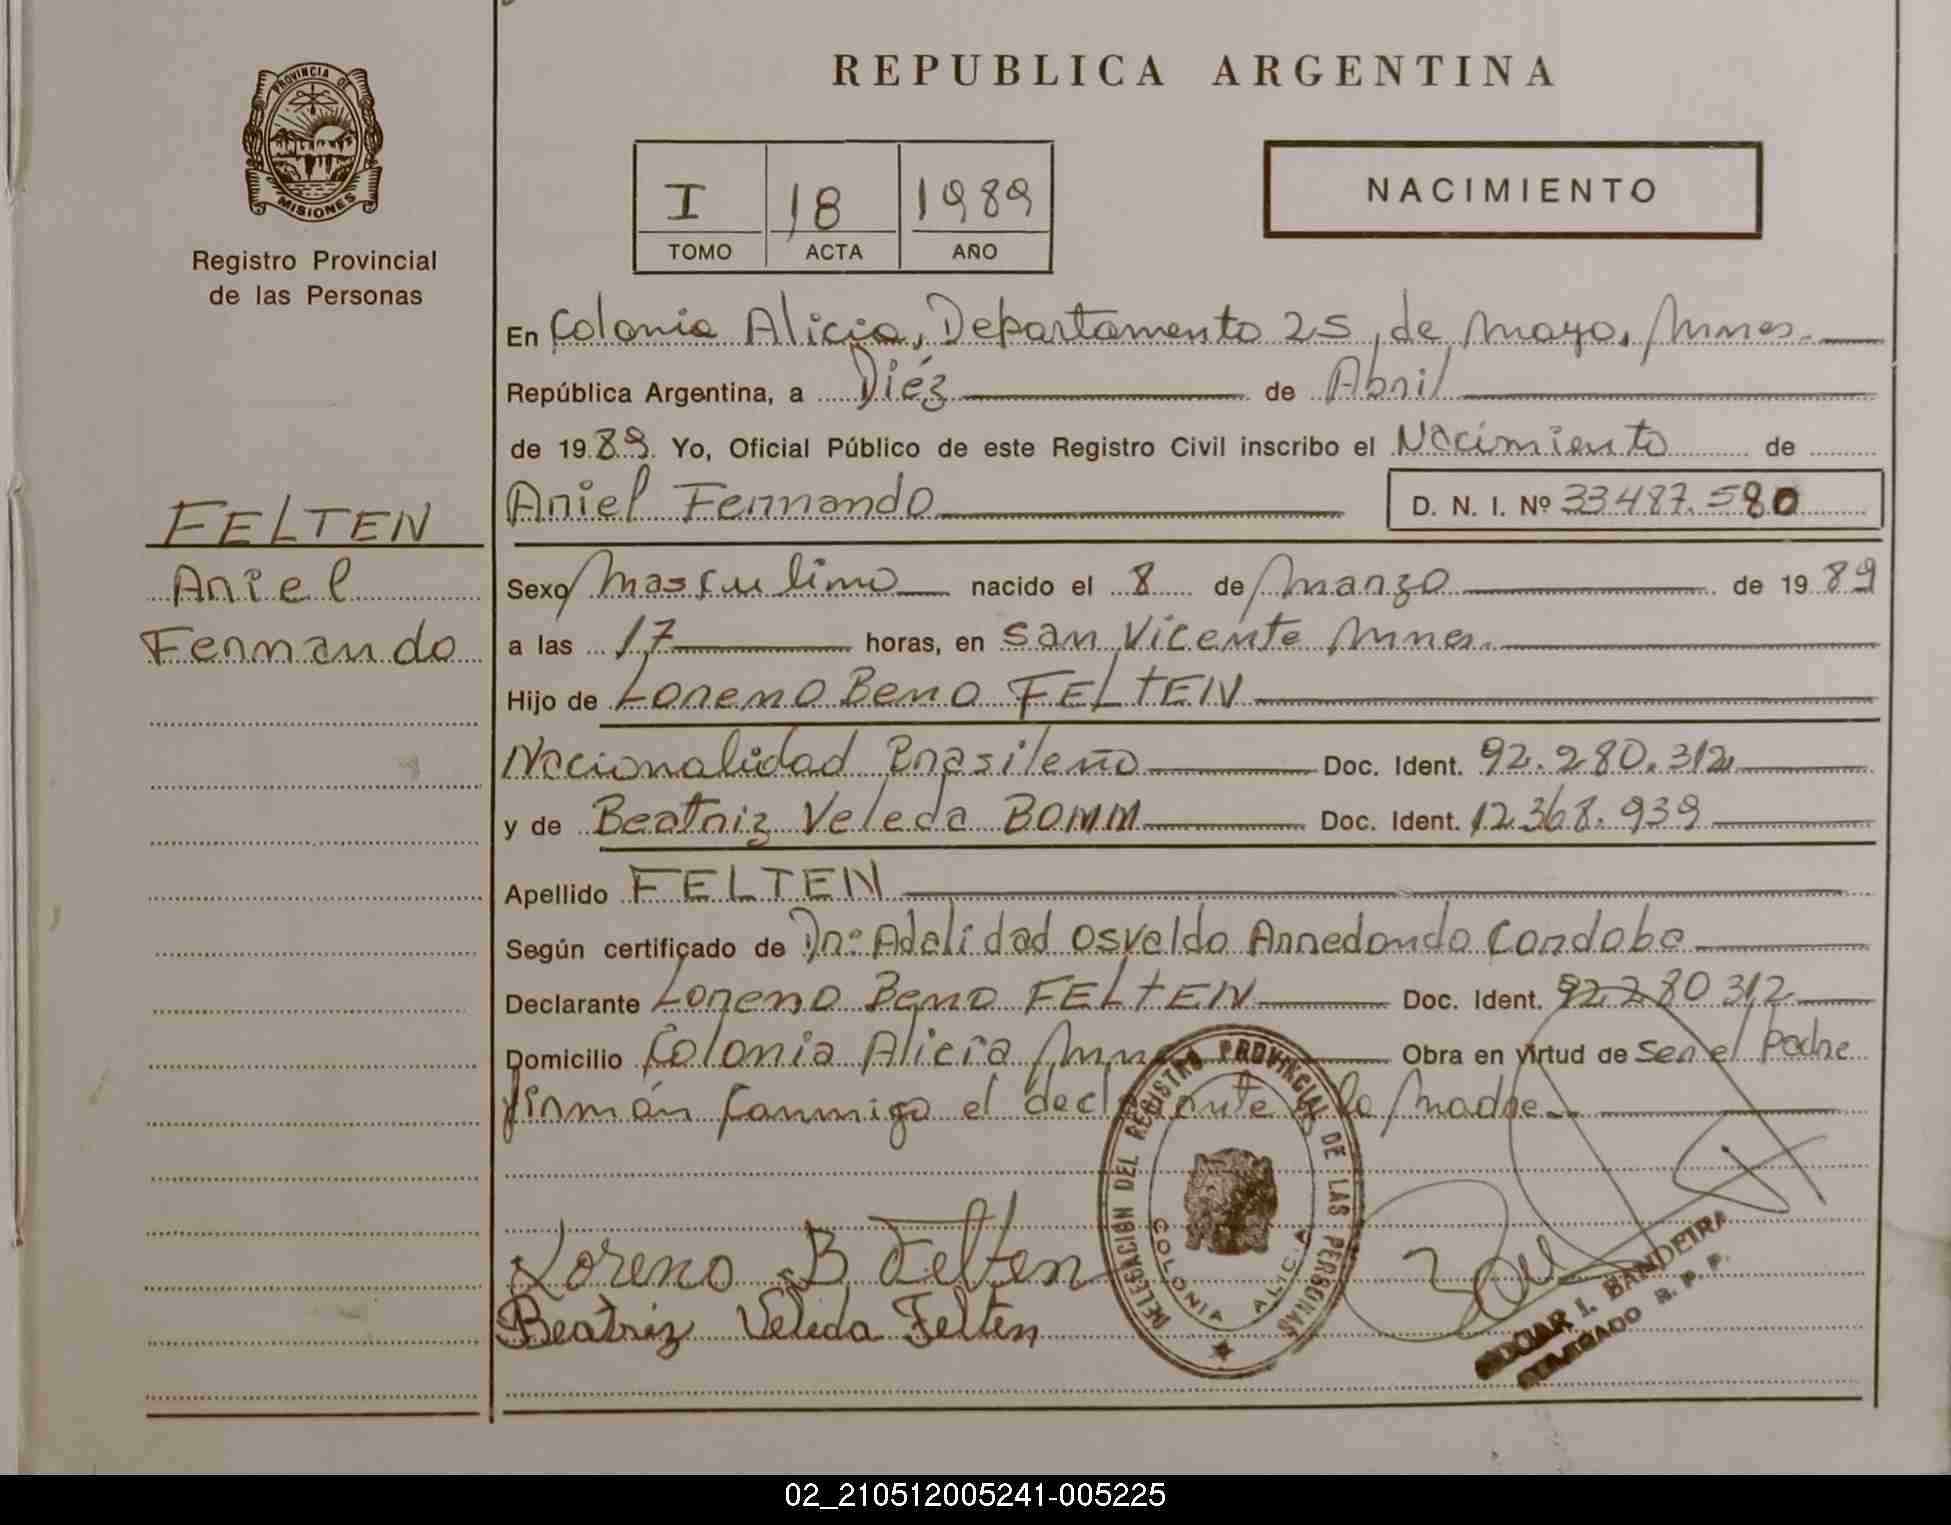 PROVINCIA DE
MISIONES
Registro Provincial
de las Personas
FELTEN
Ariel
Fernando
REPUBLICA ARGENTINA
I 18 1989
TOMO ACTA AÑO
NACIMIENTO
En Colonia Alicia, Departamento 25, de Mayo, Mnes.
República Argentina, a Diéz de Abril
de 1989. Yo, Oficial Público de este Registro Civil inscribo el Nacimiento de
Ariel Fernando D. N. I. Nº 33487.580
Sexo Masculino nacido el 8 de Marzo de 1989
a las 17 horas, en San Vicente Mnes.
Hijo de Loreno Beno FELTEN
Nacionalidad Brasileño Doc. Ident. 92.280.312
y de Beatriz Veleda BOMM Doc. Ident. 12.368.939
Apellido FELTEN
Según certificado de Dr: Adalidad Osvaldo Arredondo Cordoba
Declarante Loreno Beno FELTEN Doc. Ident. 92.280312
Domicilio Colonia Alicia Obra en virtud de Ser el Padre
firmán conmigo el declarante y la Madre.
Loreno B Felten
Beatriz Veleda Felten
DELEGACIÓN DEL REGISTRO PROVINCIAL DE LAS PERSONAS
COLONIA ALICIA
EDGAR I. BANDEIRA
DELEGADO R. P. P.
02_210512005241-005225